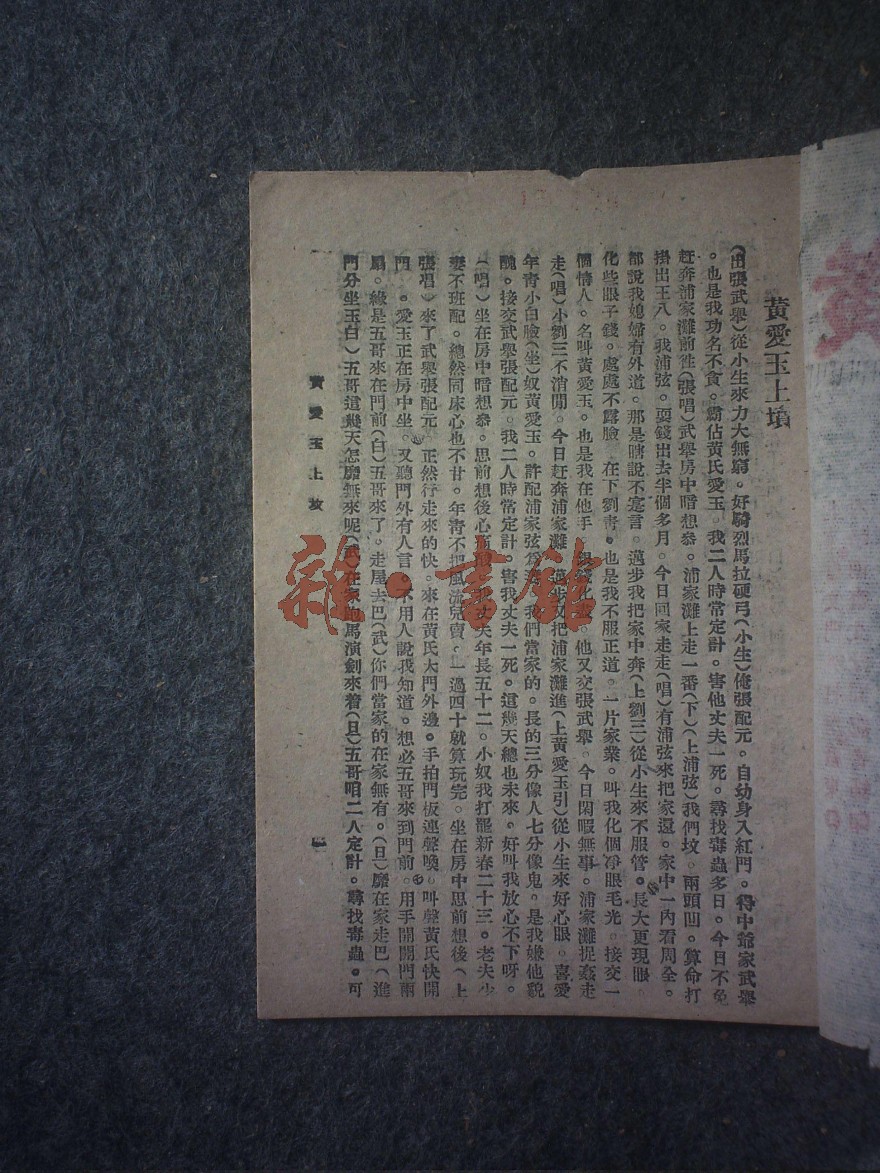 黃愛玉上墳
(出張武舉)從小生來力大無窮。好騎烈馬拉硬弓(小生)俺張配元。自幼身入紅門。得中爺家武舉
。也是我功名不貪。霸佔黃氏愛玉。我二人時常定計。害他丈夫一死。尋找毒蟲多日。今日不免
赶奔浦家灘前徃(張唱)武舉房中暗想叅。浦家灘上走一番(下)(上浦弦)我們坟。兩頭凹。算命打
掛出王八。我浦弦。耍錢出去半個多月。今日回家走走(唱)有浦弦來把家還。家中一內看周全。
都說我媳婦有外道。那是瞎說不寔言。邁步我把家中奔(上劉三)從小生來不服管。長大更現眼
化些眼子錢。處處不露臉 在下劉青。也是我不服正道。一片家業。叫我化個凈眼毛光。接交一
個情人。名叫黃愛玉。也是我在他手 銀錢化 他又交張武舉。今日閑暇無事。浦家灘捉姦走
走(唱)小劉三不消閒。今日赶奔浦家灘。邁步又把浦家灘進(上黃愛玉引)從小生來好心眼。喜愛
年靑小白臉(坐)奴黃愛玉。許配浦家弦爲 我們當家的。長的三分像人七分像鬼。是我嫌他貌
醜。接交武舉張配元。我二人時常定計。害我丈夫一死。這幾天總也未來。好叫我放心不下呀。
(唱)坐在房中暗想叅。思前想後心 我丈夫年長五十二。小奴我打罷新春二十三。老夫少
妻不班配。總然同床心也不甘。年靑不把風流兒賣。一過四十就算玩完。坐在房中思前想後(上
張唱)來了武舉張配元。正然行走來的快。來在黃氏大門外邊。手拍門板連聲喚。叫聲黃氏快開
門。愛玉正在房中坐。又聽門外有人言 不用人說我知道。想必五哥來到門前。用手開開門兩
扇。緣是五哥來在門前(白)五哥來了。走屋去巴(武)你們當家的在家無有。(旦)麽在家走巴(進
門分坐玉白)五哥這幾天怎麽無來呢(武)在家跑馬演劍來着(旦)五哥咱二人定計。尋找毒蟲。可
黃愛玉上坟
一
雜·書館
黃